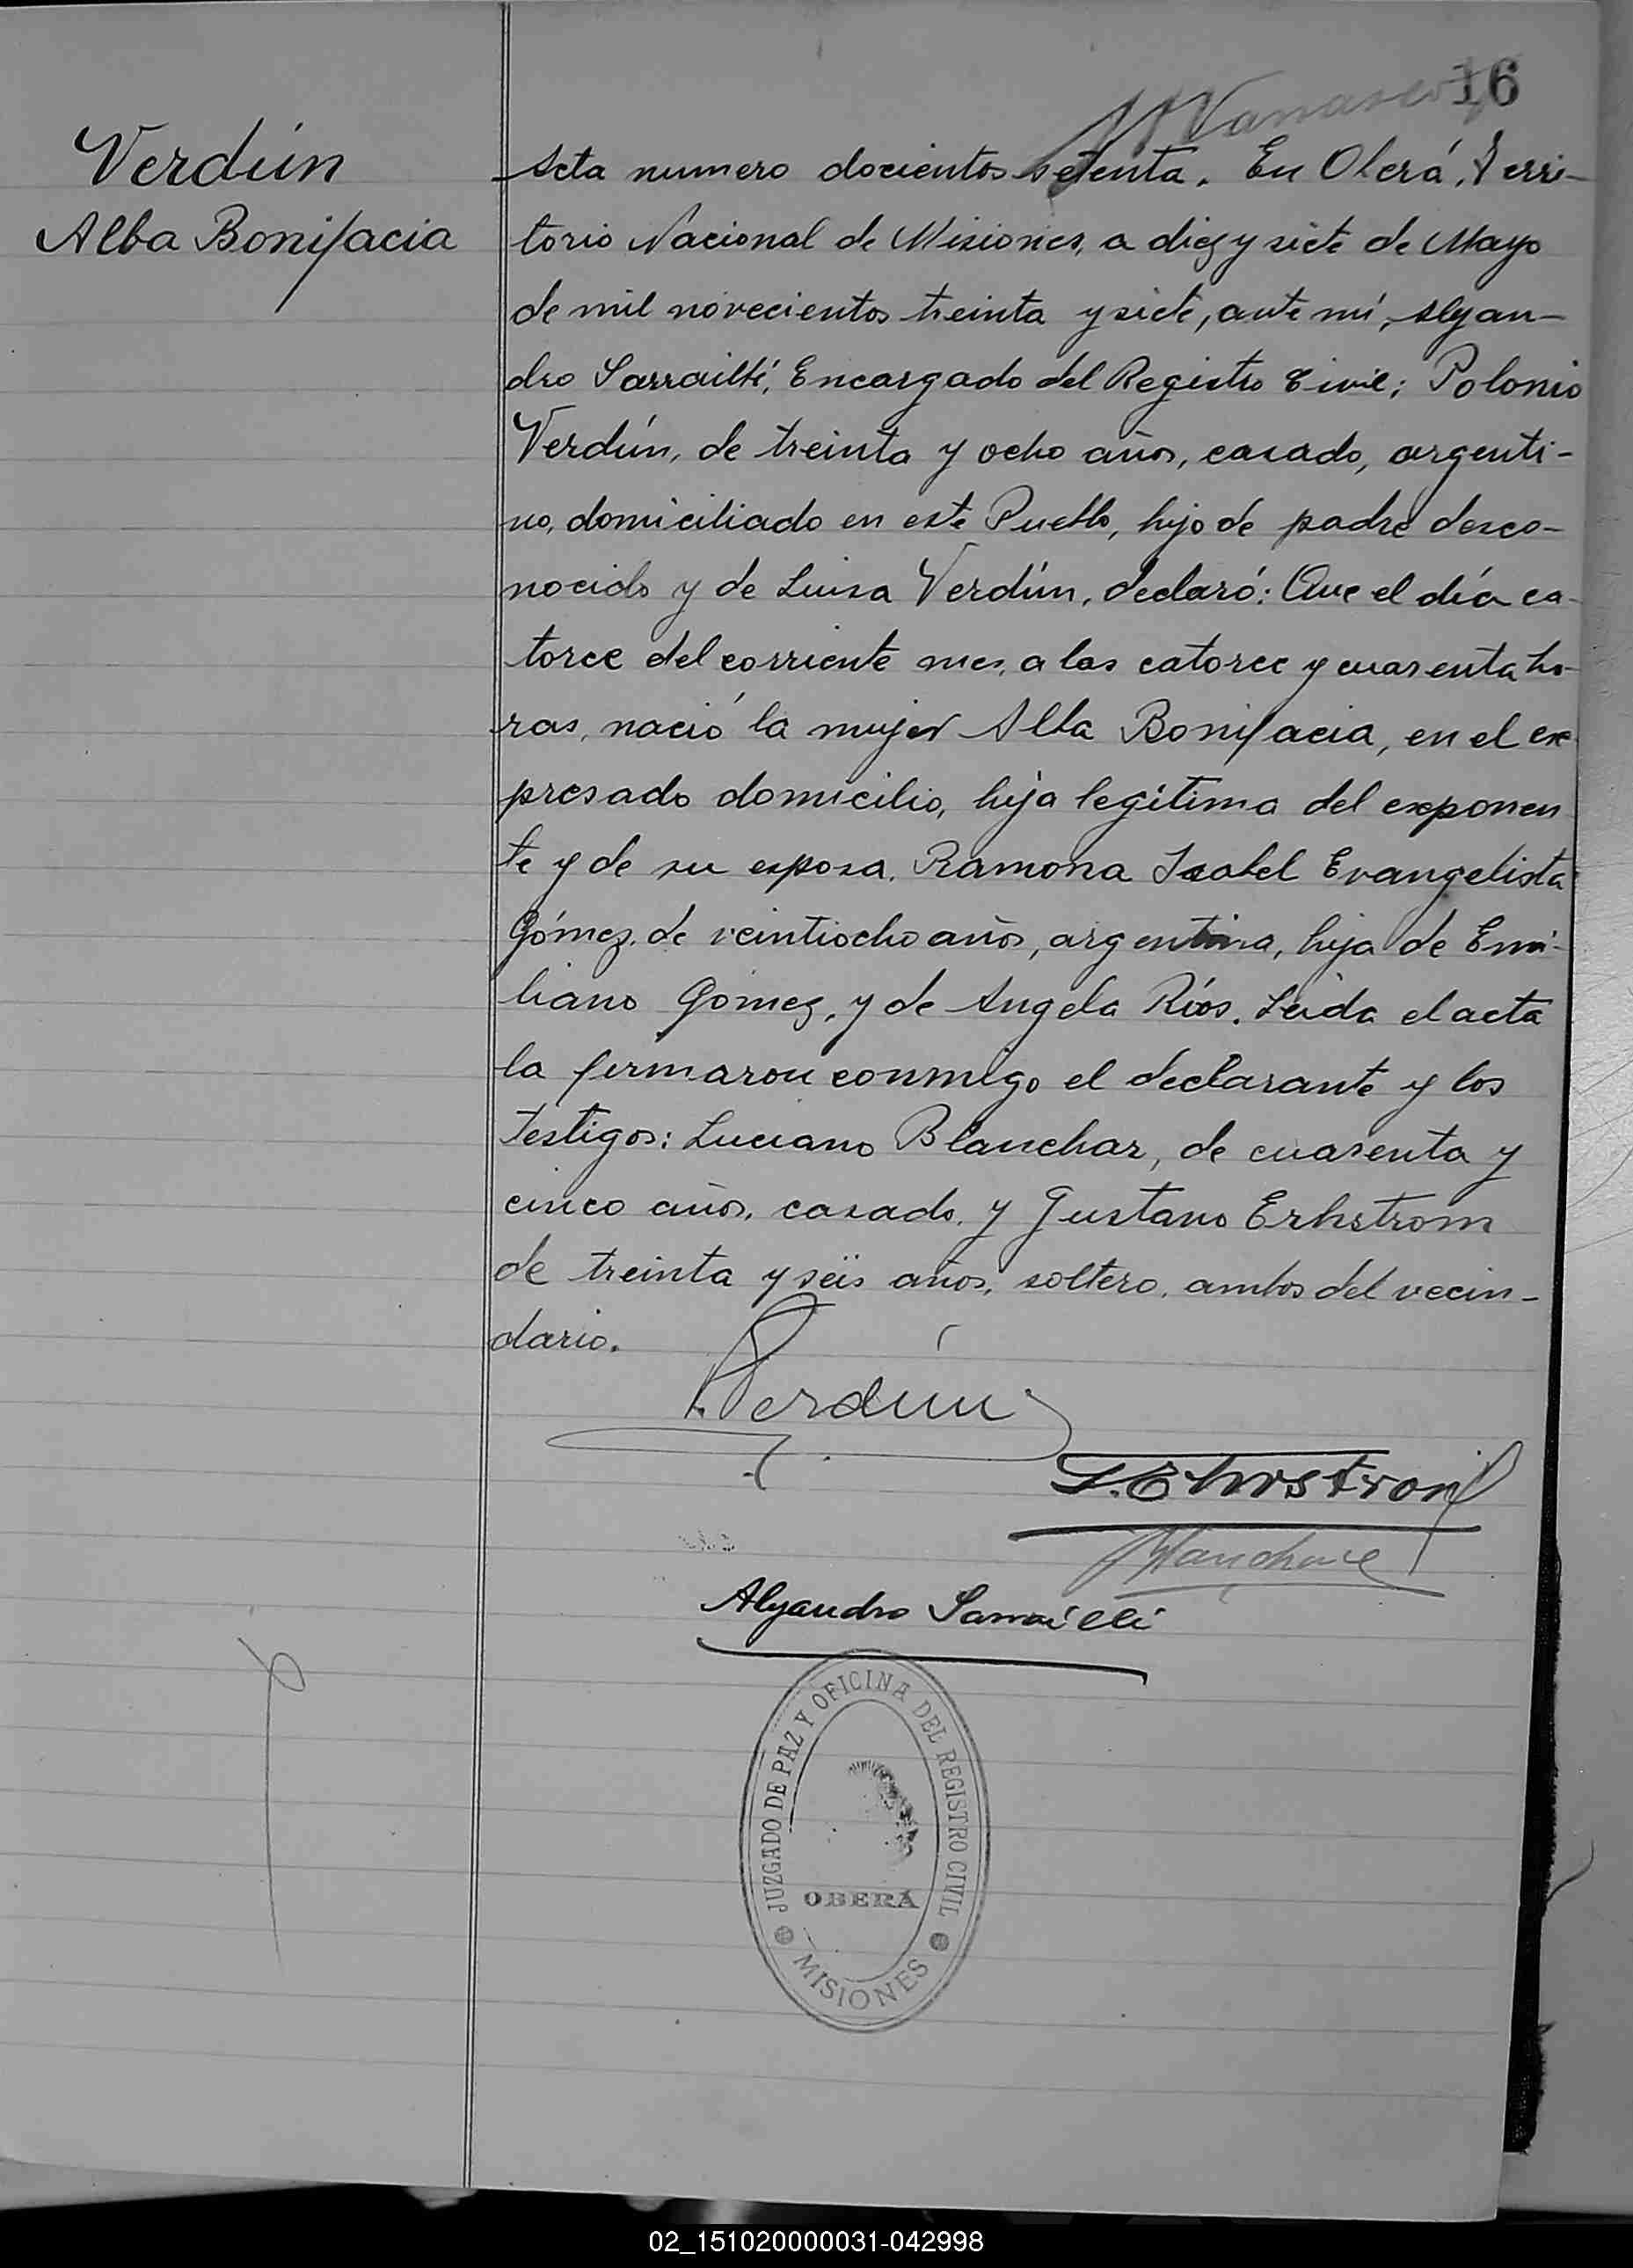 16
Verdún
Alba Bonifacia
Acta numero docientos setenta. En Oberá, Terri-
torio Nacional de Misiones, a diez y siete de Mayo
de mil novecientos treinta y siete, ante mí, Alejan-
dro Sarrailli, Encargado del Registro Civil; Polonio
Verdún, de treinta y ocho años, casado, argenti-
no, domiciliado en este Pueblo, hijo de padre desco-
nocido y de Luisa Verdún, declaró: Que el día ca-
torce del corriente mes, a las catorce y cuarenta ho-
ras, nació la mujer Alba Bonifacia, en el ex-
presado domicilio, hija legítima del exponen
te y de su esposa, Ramona Isabel Evangelista
Gómez, de veintiocho años, argentina, hija de Emi-
liano Gómez, y de Angela Ríos. Leida el acta
la firmaron conmigo el declarante y los
testigos: Luciano Blanchar, de cuarenta y
cinco años, casado, y Gustavo Erhstrom
de treinta y seis años, soltero, ambos del vecin-
dario.
P. Verdún
G. Ehrstrom
Blanchar
Alejandro Sarrailli
JUZGADO DE PAZ Y OFICINA DEL REGISTRO CIVIL
OBERÁ
MISIONES
02_151020000031-042998